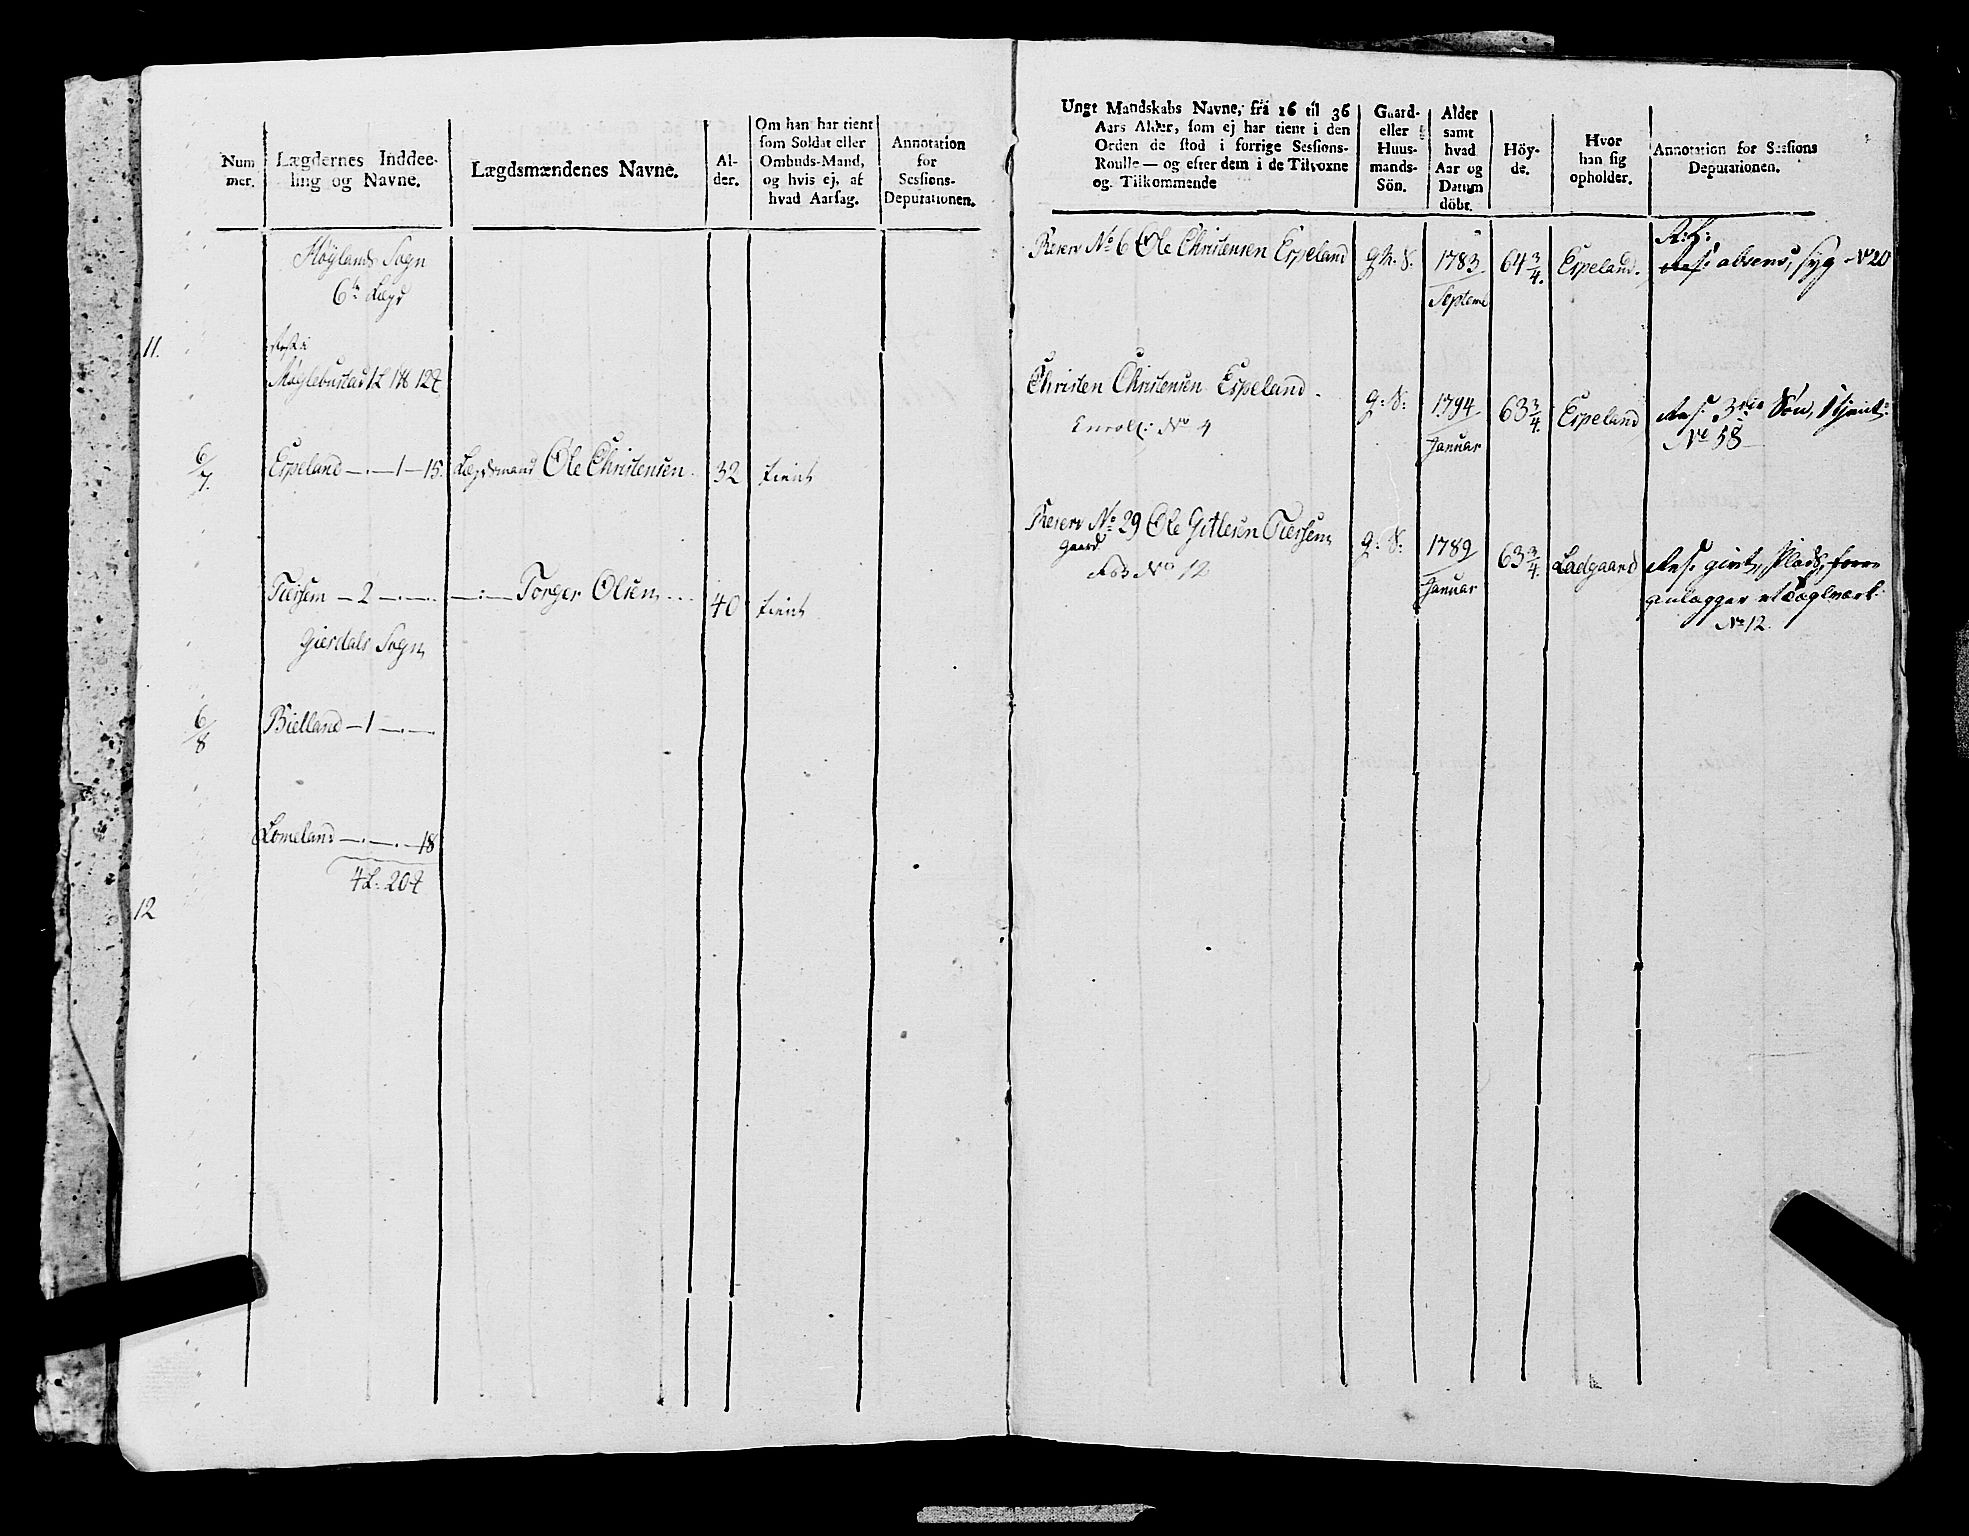 Num
mer.
Lægdernes Inddee-
ling og Navne.
Lægdsmændenes Navne.
Al-
der.
Om han har tient
som Soldat eller
Ombuds-Mand,
og hvis ej, af
hvad Aarsag.
Annotation
for
Sessions-
Deputationen.
Høylands Sogn
6te Lægd
11.
Møglebustad 1
6/7
Espeland —.— 1 — 15.
Lægdsmand Ole Christensen
32
tient
Tiersem — 2 —.—.
—.— Torger Olsen
40
tient
Giesdals Sogn
6/8
Bielland — 1 —.—.
Lomeland —.—.— 18
4L: 20
12
Ungt Mandskabs Navne, fra 16 til 36
Aars Alder, som ej har tient i den
Orden de stod i forrige Sessions-
Roulle — og efter dem i de Tilvoxne
og Tilkommende
Gaard-
eller
Huus-
mands-
Sön.
Alder
samt
hvad
Aar og
Datum
döbt.
Höy-
de.
Hvor
han sig
opholder.
Annotation for Sessions
Deputationen.
Reserv No 6 Ole Christensen Espeland
1783
Septemb
64 3/4.
Espeland.
absens, syg No 20
Christen Christensen Espeland.
Enroll: No 4
g: S:
1794
Januar
63 3/4.
Espeland
Søn, tjent:
No 58
Reserv No 29 Ole Gitlesen Tiersem
gaard
No 12
g: S:
1789
Januar
63 3/4.
Ladgaard
givt, Plads,
anlægger et Taglværk:
No 12.